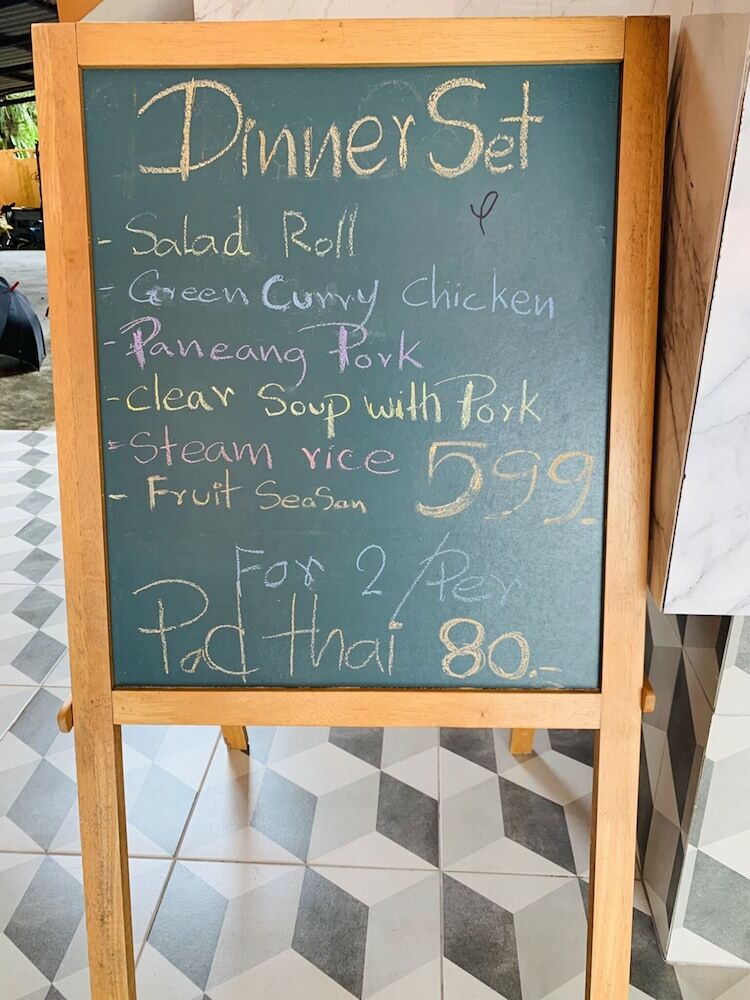 Dinner Set
- Salad Roll
- Green Curry Chicken
- Paneang Pork
- Clear Soup with Pork
- Steam rice 599.-
- Fruit SeaSan
For 2 /Per
Pad thai 80.-